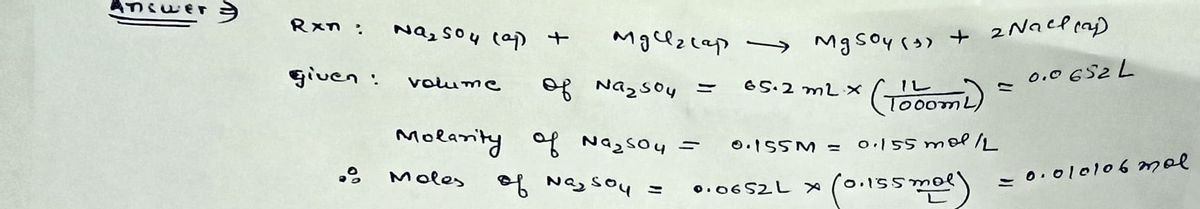 Answer ⇒
Rxn : Na₂SO₄ (aq) + MgCl₂(ap) → MgSO₄(s) + 2NaCl(aq)
given : volume of Na₂SO₄ = 65.2 mL × (1L/1000mL) = 0.0652 L
Molarity of Na₂SO₄ = 0.155M = 0.155 mol/L
∴ Moles of Na₂SO₄ = 0.0652L × (0.155mol/L) = 0.010106 mol